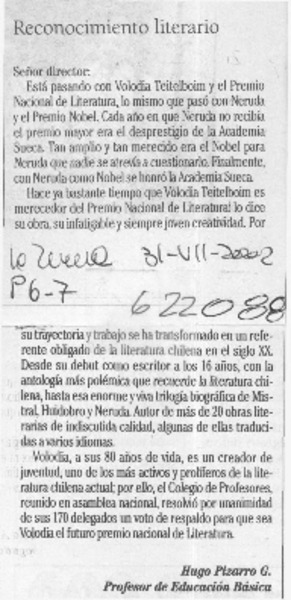 Reconocimiento literario
Señor director:
Está pasando con Volodia Teitelboim y el Premio
Nacional de Literatura, lo mismo que pasó con Neruda
y el Premio Nobel. Cada año en que Neruda no recibía
el premio mayor era el desprestigio de la Academia
Sueca. Tan amplio y tan merecido era el Nobel para
Neruda que nadie se atrevía a cuestionarlo. Finalmente,
con Neruda como Nobel se honró la Academia Sueca.
Hace ya bastante tiempo que Volodia Teitelboim es
merecedor del Premio Nacional de Literatura: lo dice
su obra, su infatigable y siempre joven creatividad. Por
31-VII-2002
P6-7
622088
su trayectoria y trabajo se ha transformado en un refe-
rente obligado de la literatura chilena en el siglo XX.
Desde su debut como escritor a los 16 años, con la
antología más polémica que recuerde la literatura chi-
lena, hasta esa enorme y viva trilogía biográfica de Mis-
tral, Huidobro y Neruda. Autor de más de 20 obras lite-
rarias de indiscutida calidad, algunas de ellas traduci-
das a varios idiomas.
Volodia, a sus 80 años de vida, es un creador de
juventud, uno de los más activos y prolíferos de la lite-
ratura chilena actual; por ello, el Colegio de Profesores,
reunido en asamblea nacional, resolvió por unanimidad
de sus 170 delegados un voto de respaldo para que sea
Volodia el futuro premio nacional de Literatura.
Hugo Pizarro G.
Profesor de Educación Básica